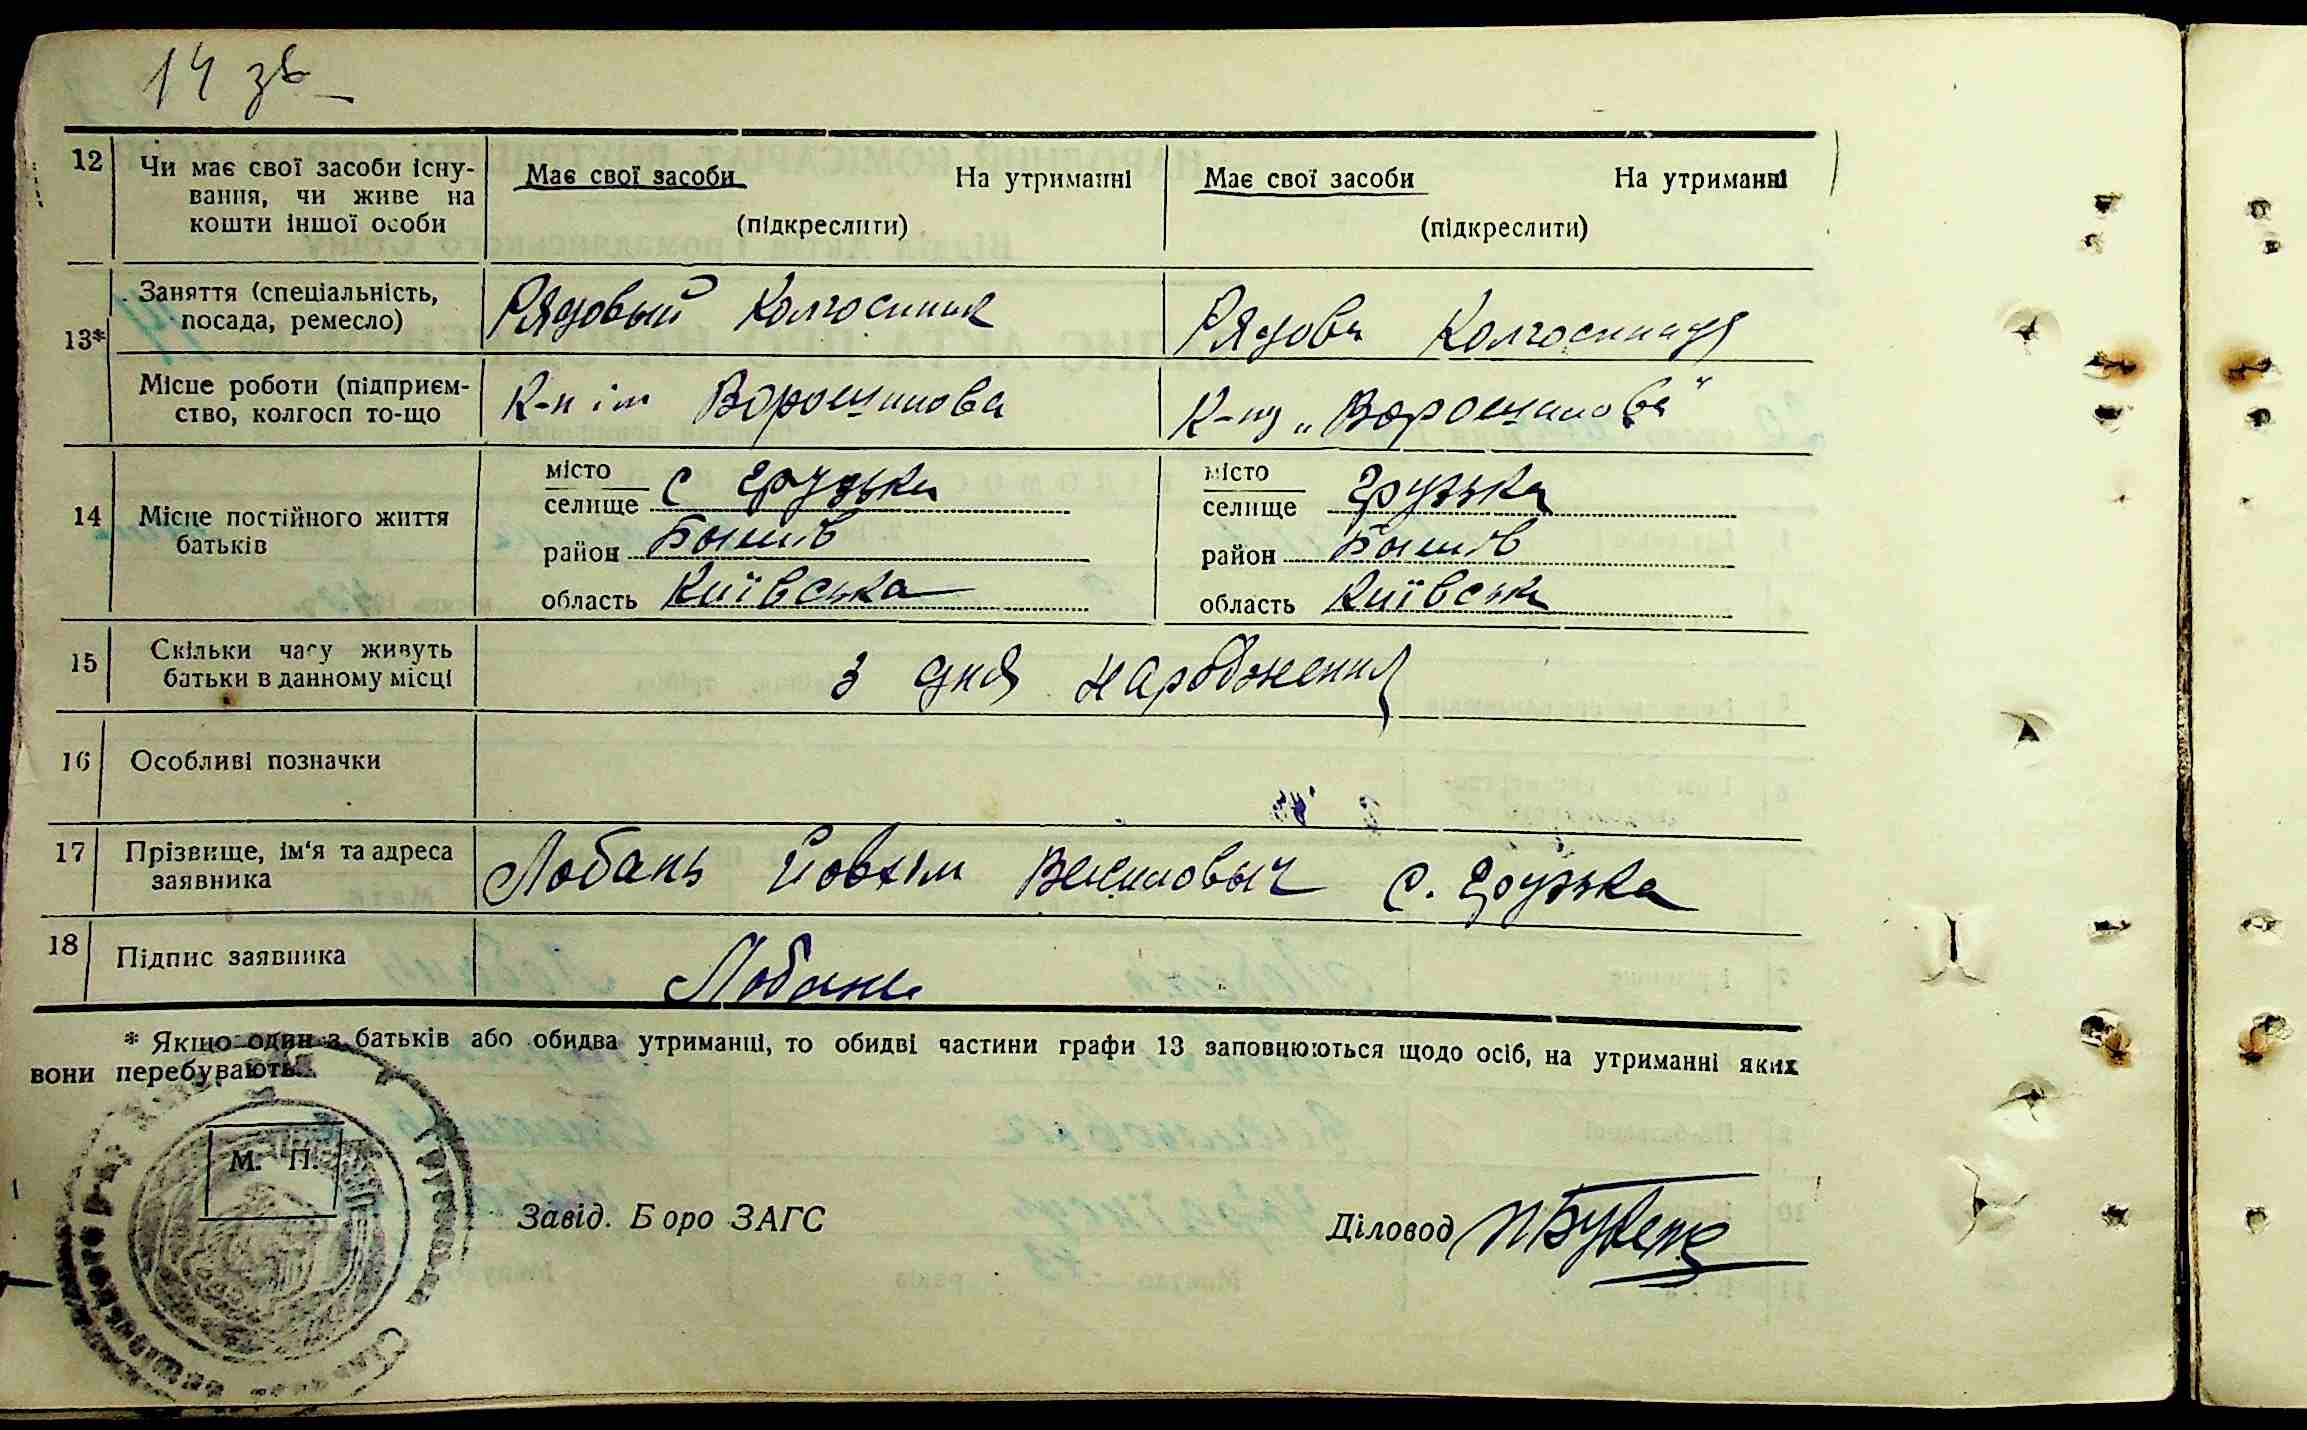 14 зв
12 Чи має свої засоби існу- Має свої засоби На утриманні Має свої засоби На утриманні
вання, чи живе на
кошти іншої особи (підкреслити) (підкреслити)
13* Заняття (спеціальність, Рядовый Колгоспник Рядова Колгоспниця
посада, ремесло)
Місце роботи (підприєм- К-п ім Ворошилова К-п „Ворошилова"
ство, колгосп то-що
14 Місце постійного життя батьків
місто селище с Грузька місто селище Грузька
район Бышів район Бышів
область Київська область Київська
15 Скільки часу живуть з дня народження
батьки в данному місці
16 Особливі позначки
17 Прізвище, ім'я та адреса Лобань Йовхім Васильовыч с. Грузька
заявника
18 Підпис заявника Лобань
* Якщо один з батьків або обидва утриманці, то обидві частини графи 13 заповнюються щодо осіб, на утриманні яких
вони перебувають.
М. П.
Завід. Бюро ЗАГС Діловод